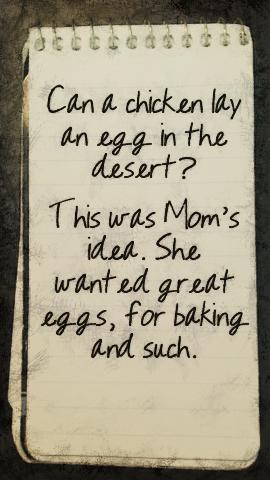 Can a chicken lay
an egg in the
desert?
This was Mom's
idea. She
wanted great
eggs, for baking
and such.